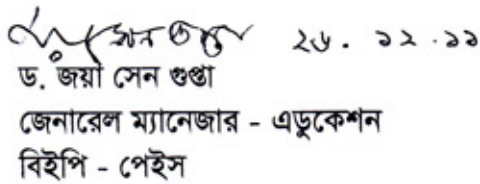 ২৬.১২.১১
ড. জয়া সেন গুপ্তা
জেনারেল ম্যানেজার - এডুকেশন
বিইপি - পেইস